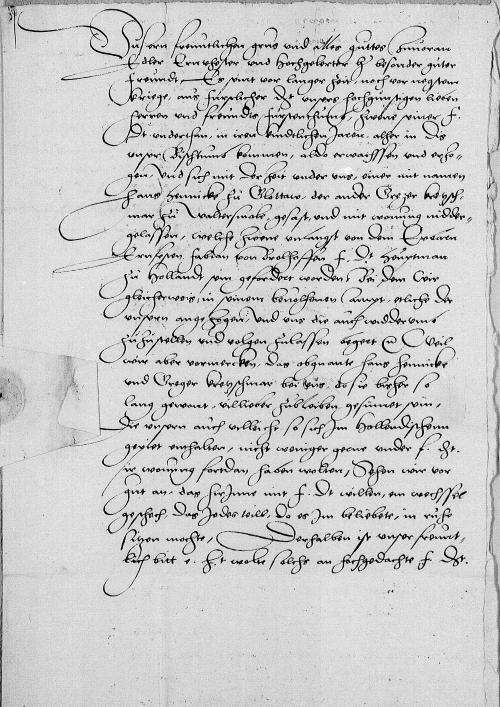 Unsern freuntlichen grus und alles guttes zuvoran
Edler Ernvhester und Hochgelerter h besonder guter
freundt. Es sint vor langer zeit, noch vor negstem
kriege, aus furstlicher dt unsers hochgunstigen lieben
herren und freundes furstenthume, zwene seiner f.
dt underthan, in iren kindtlichen Jaren, alher in dis
unser Bischtumb kommen, aldo erwachssen und erzo-
gen, und sich mit der zeit under uns, einer mit namen
Hans Hennicke zu Glottaw, der ander Greger kreysch-
mar zu Waltersmole, gesast, und mit wonung nidder-
gelassen, welche zwene unlangst von dem Erbarn
Ernvesten fabian von f. dt Hauptman
zu Hollandt, sein gefordert worden. Bei dem wir
gleicherweis, in seinem bevolhenen ampt, etliche der
unsern angezogen, und uns die auch widderumb
zuzustellen und volgen zulassen begert. Weil
wir aber vormercken, das obgnante Hans Hennicke
und Greger kreyschmar bei uns, do sie bisher so
lang gewont, villieber zubleiben gesinnet sein,
die unsern auch villeicht so sich Im Hollandischem
gepiet enthalten, nicht weniger gerne under f. dt.
ir wonung fortdan haben wolten, Sehen wir vor
gut an, das hirInne mit f. dt willen, ein wechssel
geschech, das Jedes teill, do es Im beliebete, in ruhe
sitzen mochte, Derhalben ist unser freunt-
lich bitt e. h.t wolte solche an hochgedachte f. dt.